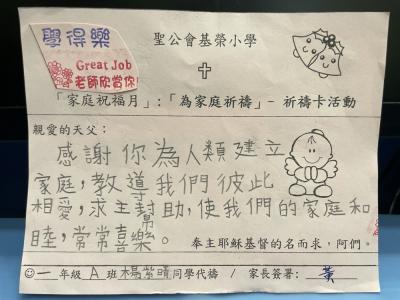 學得樂
Great Job
老師欣賞你!
聖公會基榮小學
「家庭祝福月」:「為家庭祈禱」- 祈禱卡活動
親愛的天父:
感謝你為人類建立
家庭,教導我們彼此
相愛,求主幫助,使我們的家庭和
睦,常常喜樂。
奉主耶穌基督的名而求,阿們。
一年級 A 班楊紫晴同學代禱 / 家長簽署: 黃